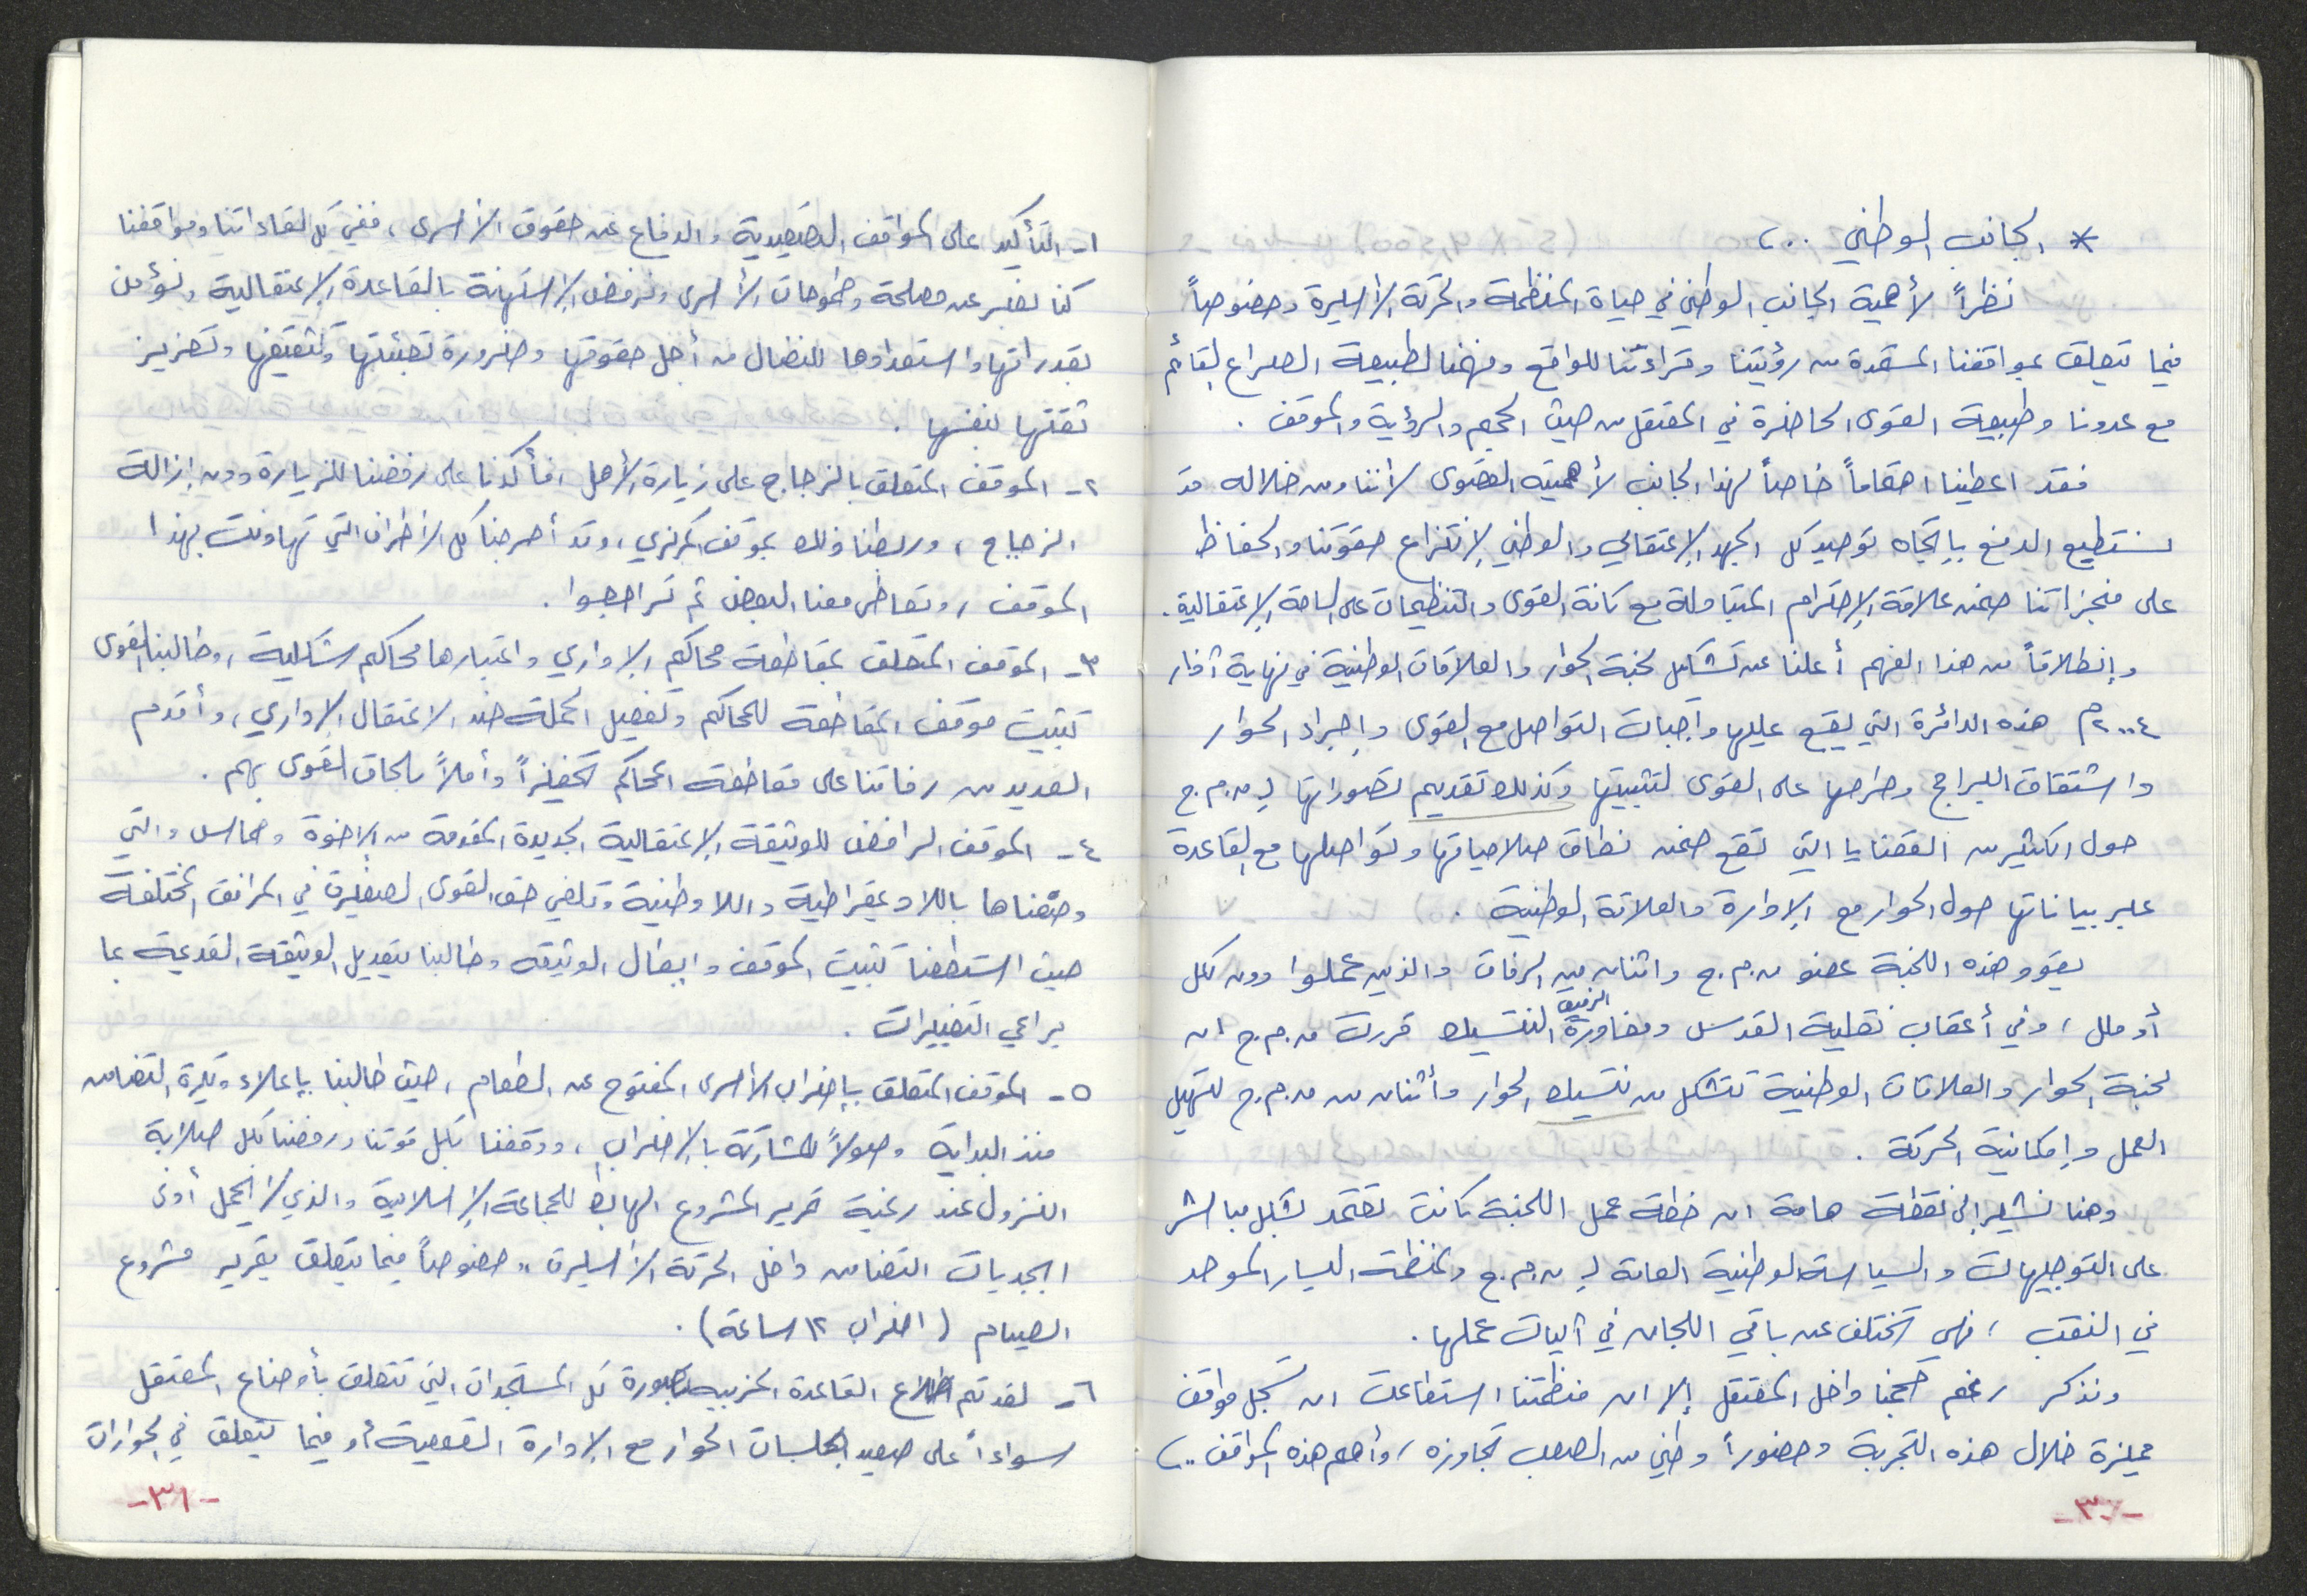 * الجانب الوطني ..،
نظراً لأهمية الجانب الوطني في حياة المنظمة والحركة الأسيرة وخصوصاً
فيما يتعلق بمواقفنا المستمدة من رؤيتنا وقراءتنا للواقع وفهمنا لطبيعة الصراع القائم
مع عدونا وطبيعة القوى الحاضرة في المعتقل من حيث الحجم والرؤية والموقف .
فقد اعطينا اهتماماً خاصاً لهذا الجانب لأهميته القصوى لأننا ومن خلاله قد
نستطيع الدفع بإتجاه توحيد كل الجهد الإعتقالي والوطني لإنتزاع حقوقنا والحفاظ
على منجزاتنا ضمن علاقة الإحترام المتبادلة مع كافة القوى والتنظيمات على الساحة الإعتقالية .
وإنطلاقاً من هذا الفهم أعلنا عن تشكيل لجنة الحوار والعلاقات الوطنية في نهاية آذار
٢٠٠٤م هذه الدائرة التي يقع عليها واجبات التواصل مع القوى وإجراء الحوار
واشتقاق البرامج وطرحها على القوى لتثبيتها وكذلك تقديم تصوراتها لـ م.م.ج
حول الكثير من القضايا التي تقع ضمن نطاق صلاحياتها وتواصلها مع القاعدة
عبر بياناتها حول الحوار مع الإدارة والعلاقة الوطنية .
يقود هذه اللجنة عضو م.م.ج واثنان من الرفاق والذين عملوا دون كلل
أو ملل ، وفي أعقاب نقلية القدس ومغادرة الرفيق المنسق قررت م.م.ج ان
لجنة الحوار والعلاقات الوطنية تتشكل من منسق الحوار وأثنان من م.م.ج لتسهيل
العمل وإمكانية الحركة .
وهنا نشير إلى نقطة هامة ان خطة عمل اللجنة كانت تعتمد بشكل مباشر
على التوجيهات والسياسة الوطنية العامة لـ م.م.ج ولمنظمة اليسار الموحد
في النقب ، فهي تختلف عن باقي اللجان في آليات عملها .
ونذكر رغم حجمنا داخل المعتقل إلا ان منظمتنا استطاعت ان تسجل مواقف
مميزة خلال هذه التجربة وحضوراً وطني من الصعب تجاوزه ، وأهم هذه المواقف ..،
-٣٠-
١- التأكيد على المواقف التصعيدية والدفاع عن حقوق الأسرى ، ففي كل لقاءاتنا ومواقفنا
كنا نعبر عن مصلحة وطموحات الأسرى ونرفض الإستهانة بالقاعدة الإعتقالية ونؤمن
بقدراتها واستعدادها للنضال من أجل حقوقها وضرورة تعبئتها وتثقيفها وتعزيز
ثقتها بنفسها .
٢- الموقف المتعلق بالزجاج على زيارة الأهل ، فأكدنا على رفضنا للزيارة دون إزالة
الزجاج ، وربطنا ذلك بموقف مركزي ، وقد أحرجنا كل الأطراف التي تهاونت بهذا
الموقف ، وتعاطى معنا البعض ثم تراجعوا .
٣- الموقف المتعلق بمقاطعة محاكم الإداري واعتبارها محاكم شكلية ، وطالبنا القوى
تثبيت موقف المقاطعة للمحاكم وتفعيل الحملة ضد الاعتقال الإداري ، وأقدم
العديد من رفاقنا على مقاطعة المحاكم تحفيزاً وأملاً بلحاق القوى بهم .
٤- الموقف الرافض للوثيقة الإعتقالية الجديدة المقدمة من الإخوة وحماس والتي
وصفناها باللاديمقراطية واللاوطنية وتلغي حق القوى الصغيرة في المرافق المختلفة
حيث استطعنا تثبيت الموقف وإبطال الوثيقة وطالبنا بتعديل الوثيقة القديمة بما
يراعي التغييرات .
٥- الموقف المتعلق بإضراب الأسرى المفتوح عن الطعام ، حيث طالبنا بإعلاء وتيرة التضامن
منذ البداية وصولاً للمشاركة بالإضراب ، ووقفنا بكل قوتنا ورفضنا بكل صلابة
النزول عند رغبة تمرير المشروع الهابط للجماعة الإسلامية والذي لا يحمل أدنى
ابجديات التضامن داخل الحركة الأسيرة ،، خصوصاً فيما يتعلق بتمرير مشروع
الصيام ( اضراب ١٢ ساعة ) .
٦- لقد تم اطلاع القاعدة الحزبية بصورة كل المستجدات التي تتعلق بأوضاع المعتقل
سواءاً على صعيد جلسات الحوار مع الإدارة القمعية أو فيما يتعلق في الحوارات
-٣١-